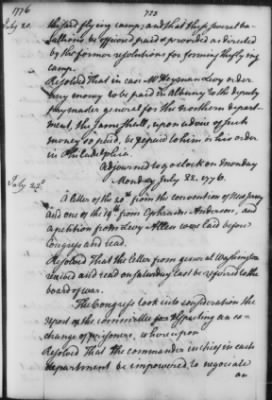 1776
July 20.
the said flying camp; and that the several bat-
talions be officered paid & provided as directed
by the former resolutions for forming the flying
camp.
Resolved That in case Mr Heyman Levy order
any money to be paid in Albany to the deputy
pay master general for the Northern depart-
ment, the same shall, upon advice of such
money so paid, be repaid to him or his order
in Philadelphia.
Adjourned to 9 o clock on Monday
Monday July 22. 1776.
July 22d
A letter of the 20th from the convention of New Jersey
and one of the 19th from Ephraim Anderson, and
a petition from Levy Allen were laid before
Congress and read.
Resolved That the letter from general Washington
received and read on Saturday last be referred to the
board of war.
The Congress took into consideration the
report of the committee respecting an ex-
change of prisoners, whereupon
Resolved That the commander in chief in each
department be empowered to negociate
an